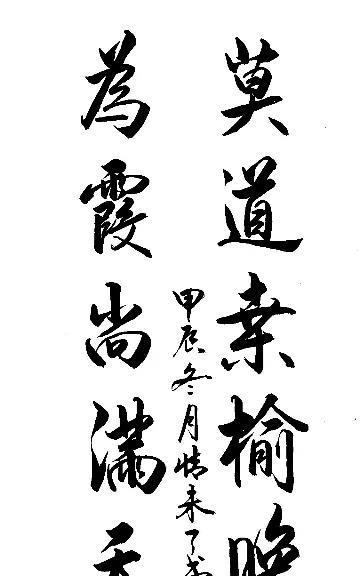 莫道桑榆晚
為霞尚滿天
甲辰冬月情来了书